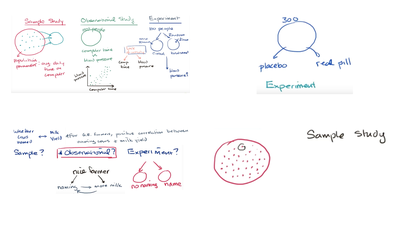 Sample Study
Observational Study
Experiment
100 people
population
parameter
avg daily
time on
computer
computer time
blood pressure
blood
pressure
computer time
comp
time
blood
pressure
blood
pressure?
300
placebo
red pill
Experiment
whether
cows
named
milk
yield
after G.B. farmers, positive correlation between
naming cows + milk yield
Sample?
Observational?
Experiment?
nice farmer
naming
more milk
no naming
name
G
Sample Study